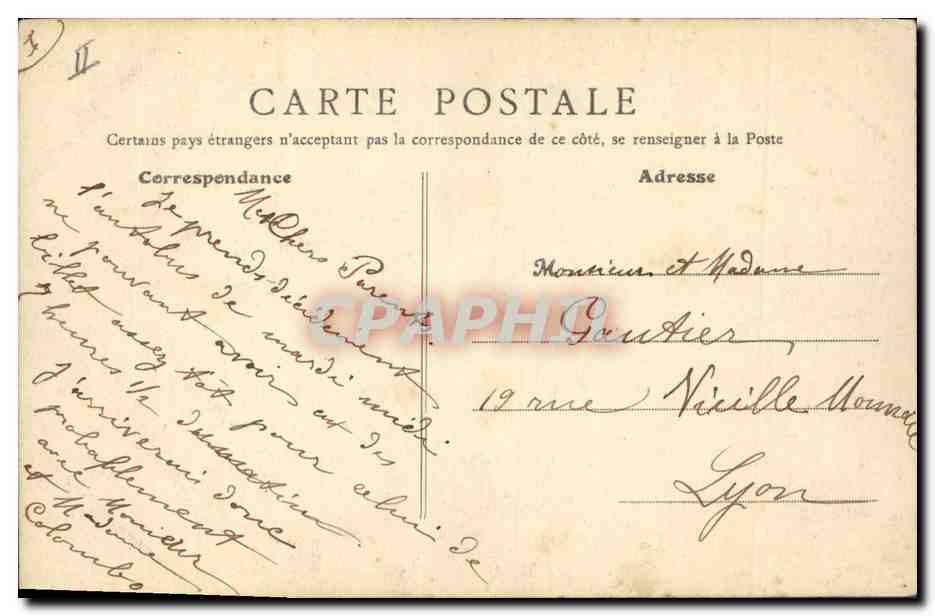 II
CARTE POSTALE
Certains pays étrangers n'acceptant pas la correspondance de ce côté, se renseigner à la Poste
Correspondance
Adresse
Chers Parents.
Je prends décidément
l'autobus de mardi midi
ne pouvant avoir des
billet assez tôt pour celui de
heures 1/2 du matin.
J'arriverai donc
probablement
avec Monsieur
et Madame
Colombo
Monsieur et Madame
Gautier
19 rue Vieille Monnaie
Lyon
CPAPHIL